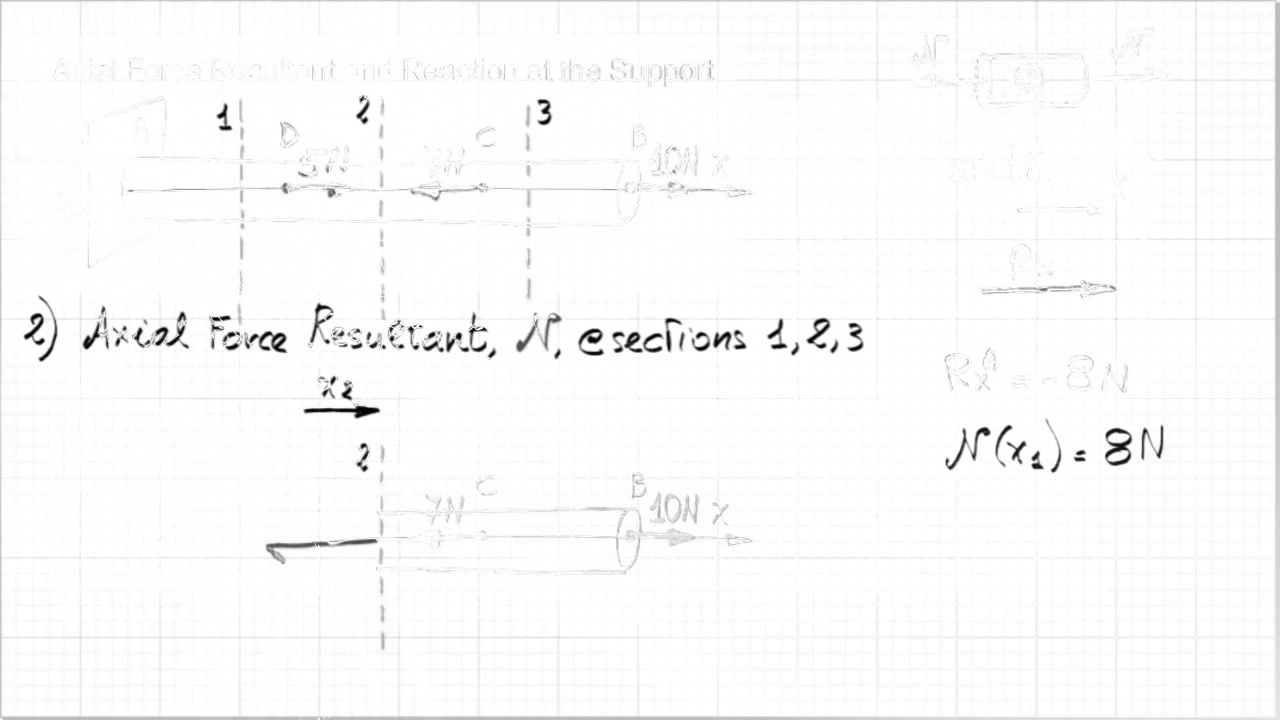 Axial Force Resultant and Reaction at the Support
N N
1 2 3
A D C B
5N 7N 10N x
2) Axial Force Resultant, N, @ sections 1, 2, 3
x2
2
C B
7N 10N x
RxA = -8N
N(x1) = 8N